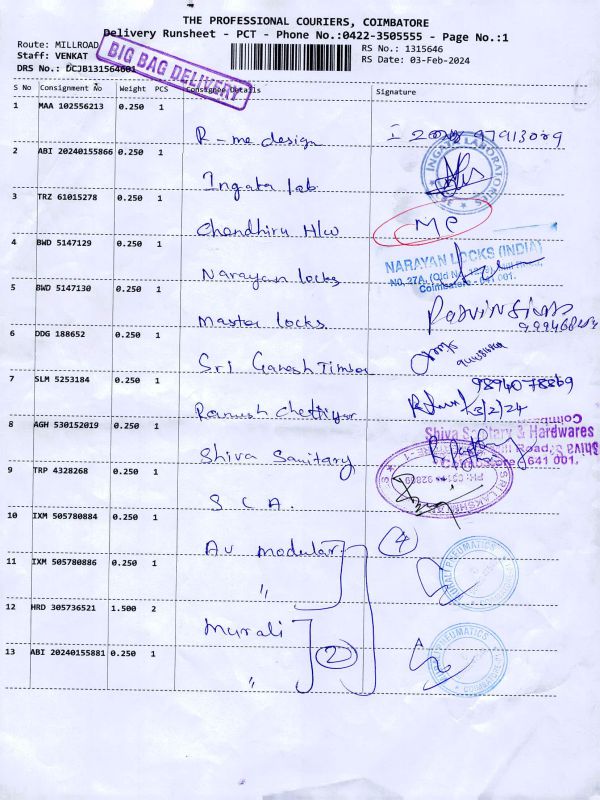 THE PROFESSIONAL COURIERS, COIMBATORE
Delivery Runsheet - PCT - Phone No.:0422-3505555 - Page No.:1
Route: MILLROAD
RS No.: 1315646
Staff: VENKAT
RS Date: 03-Feb-2024
DRS No.: DCJB131564601
BIG BAG DELIVERY
S No Consignment No Weight PCS Consignee Details Signature
1 MAA 102556213 0.250 1
R-me design
2 ABI 20240155866 0.250 1
Ingata lab
INGATA LABORATORIES
3 TRZ 61015278 0.250 1
Chandhiru H/W
MC
4 BWD 5147129 0.250 1
Narayan locks
NARAYAN LOCKS (INDIA)
Coimbatore - 641 001.
5 BWD 5147130 0.250 1
Master locks
6 DDG 188652 0.250 1
Sri Ganesh Timber
7 SLM 5253184 0.250 1
Ramesh Chettiyar
9894078869
3/2/24
8 AGH 530152019 0.250 1
Shiva Sanitary
Shiva Sanitary & Hardwares
Coimbatore - 641 001.
9 TRP 4328268 0.250 1
S C A.
10 IXM 505780884 0.250 1
Av modular
4
11 IXM 505780886 0.250 1
"
PNEUMATICS
12 HRD 305736521 1.500 2
Murali
2
13 ABI 20240155881 0.250 1
"
PNEUMATICS